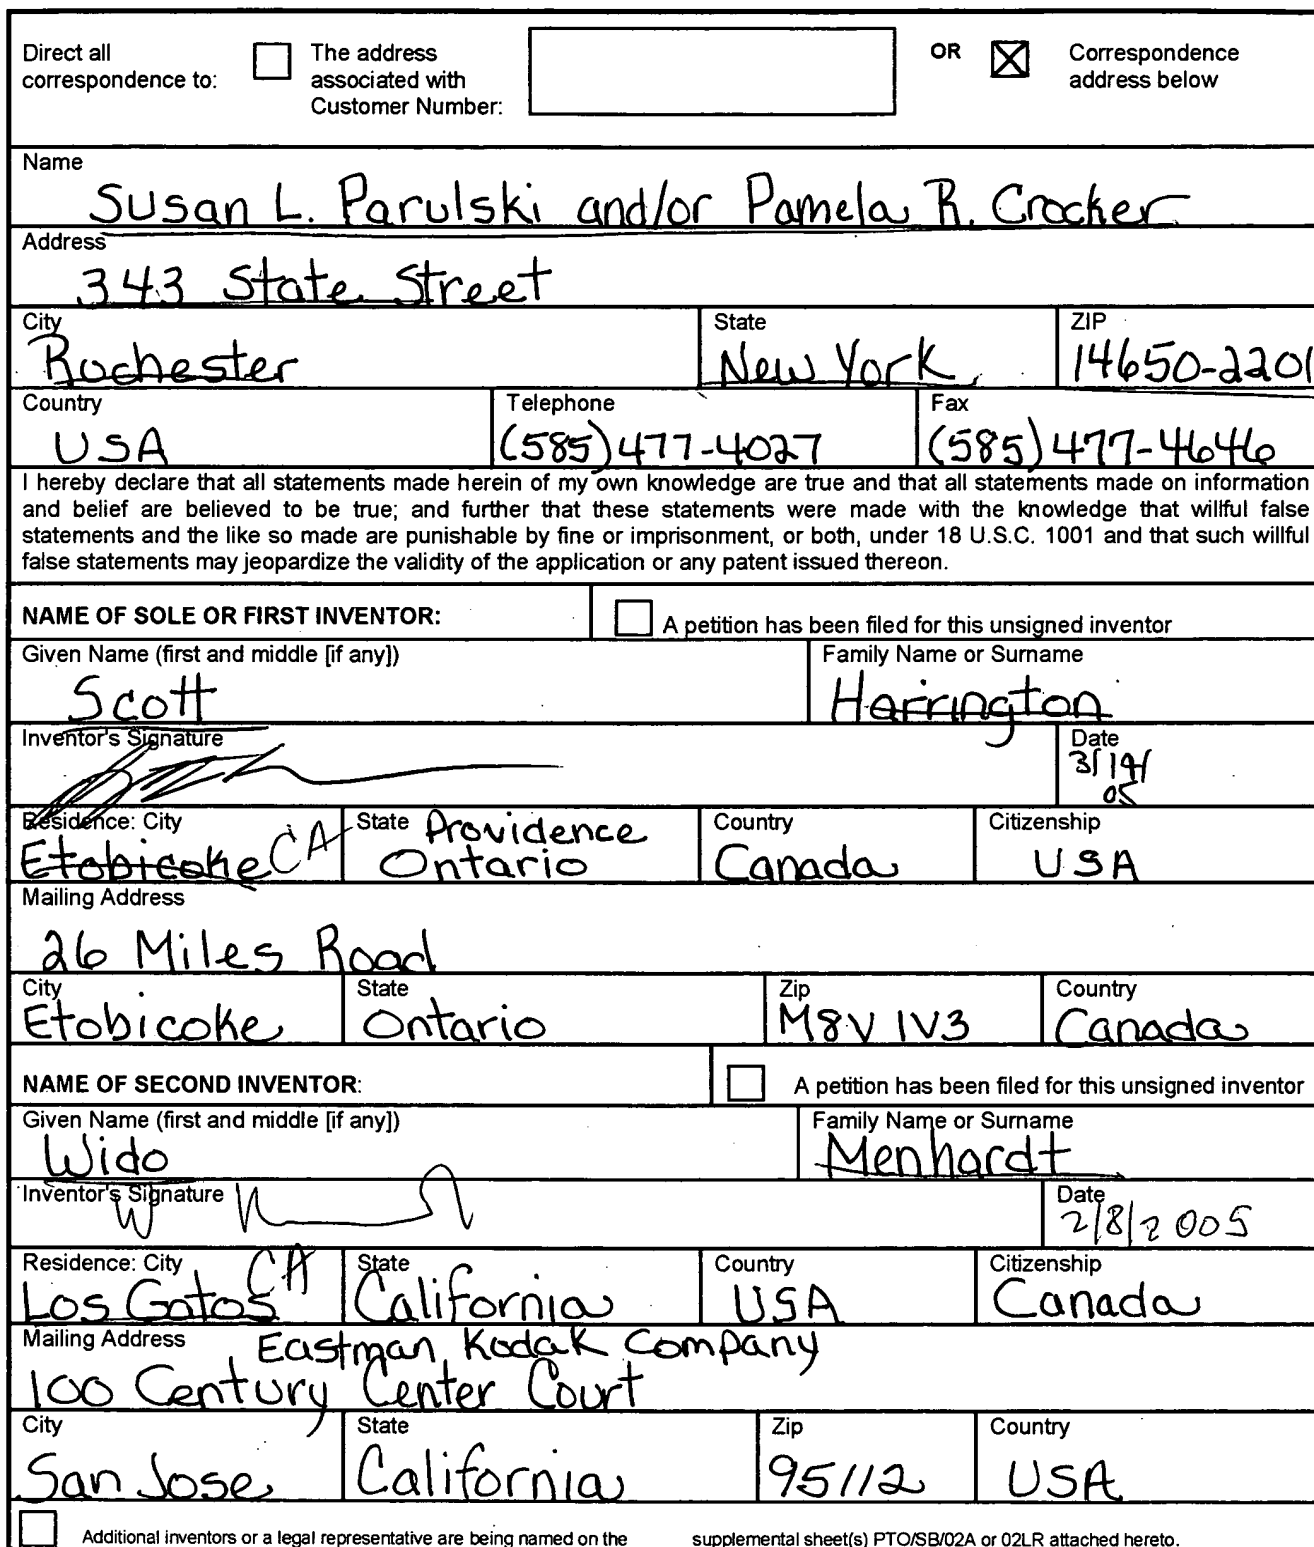 Direct all correspondence to:
The address associated with Customer Number:
OR
Correspondence address below
Name
Susan L. Parulski and/or Pamela R. Crocker
Address
343 State Street
City
Rochester
State
New York
ZIP
14650-2201
Country
USA
Telephone
(585)477-4027
Fax
(585)477-4646
I hereby declare that all statements made herein of my own knowledge are true and that all statements made on information
and belief are believed to be true; and further that these statements were made with the knowledge that willful false
statements and the like so made are punishable by fine or imprisonment, or both, under 18 U.S.C. 1001 and that such willful
false statements may jeopardize the validity of the application or any patent issued thereon.
NAME OF SOLE OR FIRST INVENTOR:
A petition has been filed for this unsigned inventor
Given Name (first and middle [if any])
Scott
Family Name or Surname
Harrington
Inventor's Signature
Date
3/14/
05
Residence: City
Etobicoke CA
State Providence
Ontario
Country
Canada
Citizenship
USA
Mailing Address
26 Miles Road
City
Etobicoke
State
Ontario
Zip
M8V 1V3
Country
Canada
NAME OF SECOND INVENTOR:
A petition has been filed for this unsigned inventor
Given Name (first and middle [if any])
Wido
Family Name or Surname
Menhardt
Inventor's Signature
Date
2/8/2005
Residence: City
Los Gatos CA
State
California
Country
USA
Citizenship
Canada
Mailing Address Eastman Kodak Company
100 Century Center Court
City
San Jose
State
California
Zip
95112
Country
USA
Additional inventors or a legal representative are being named on the supplemental sheet(s) PTO/SB/02A or 02LR attached hereto.